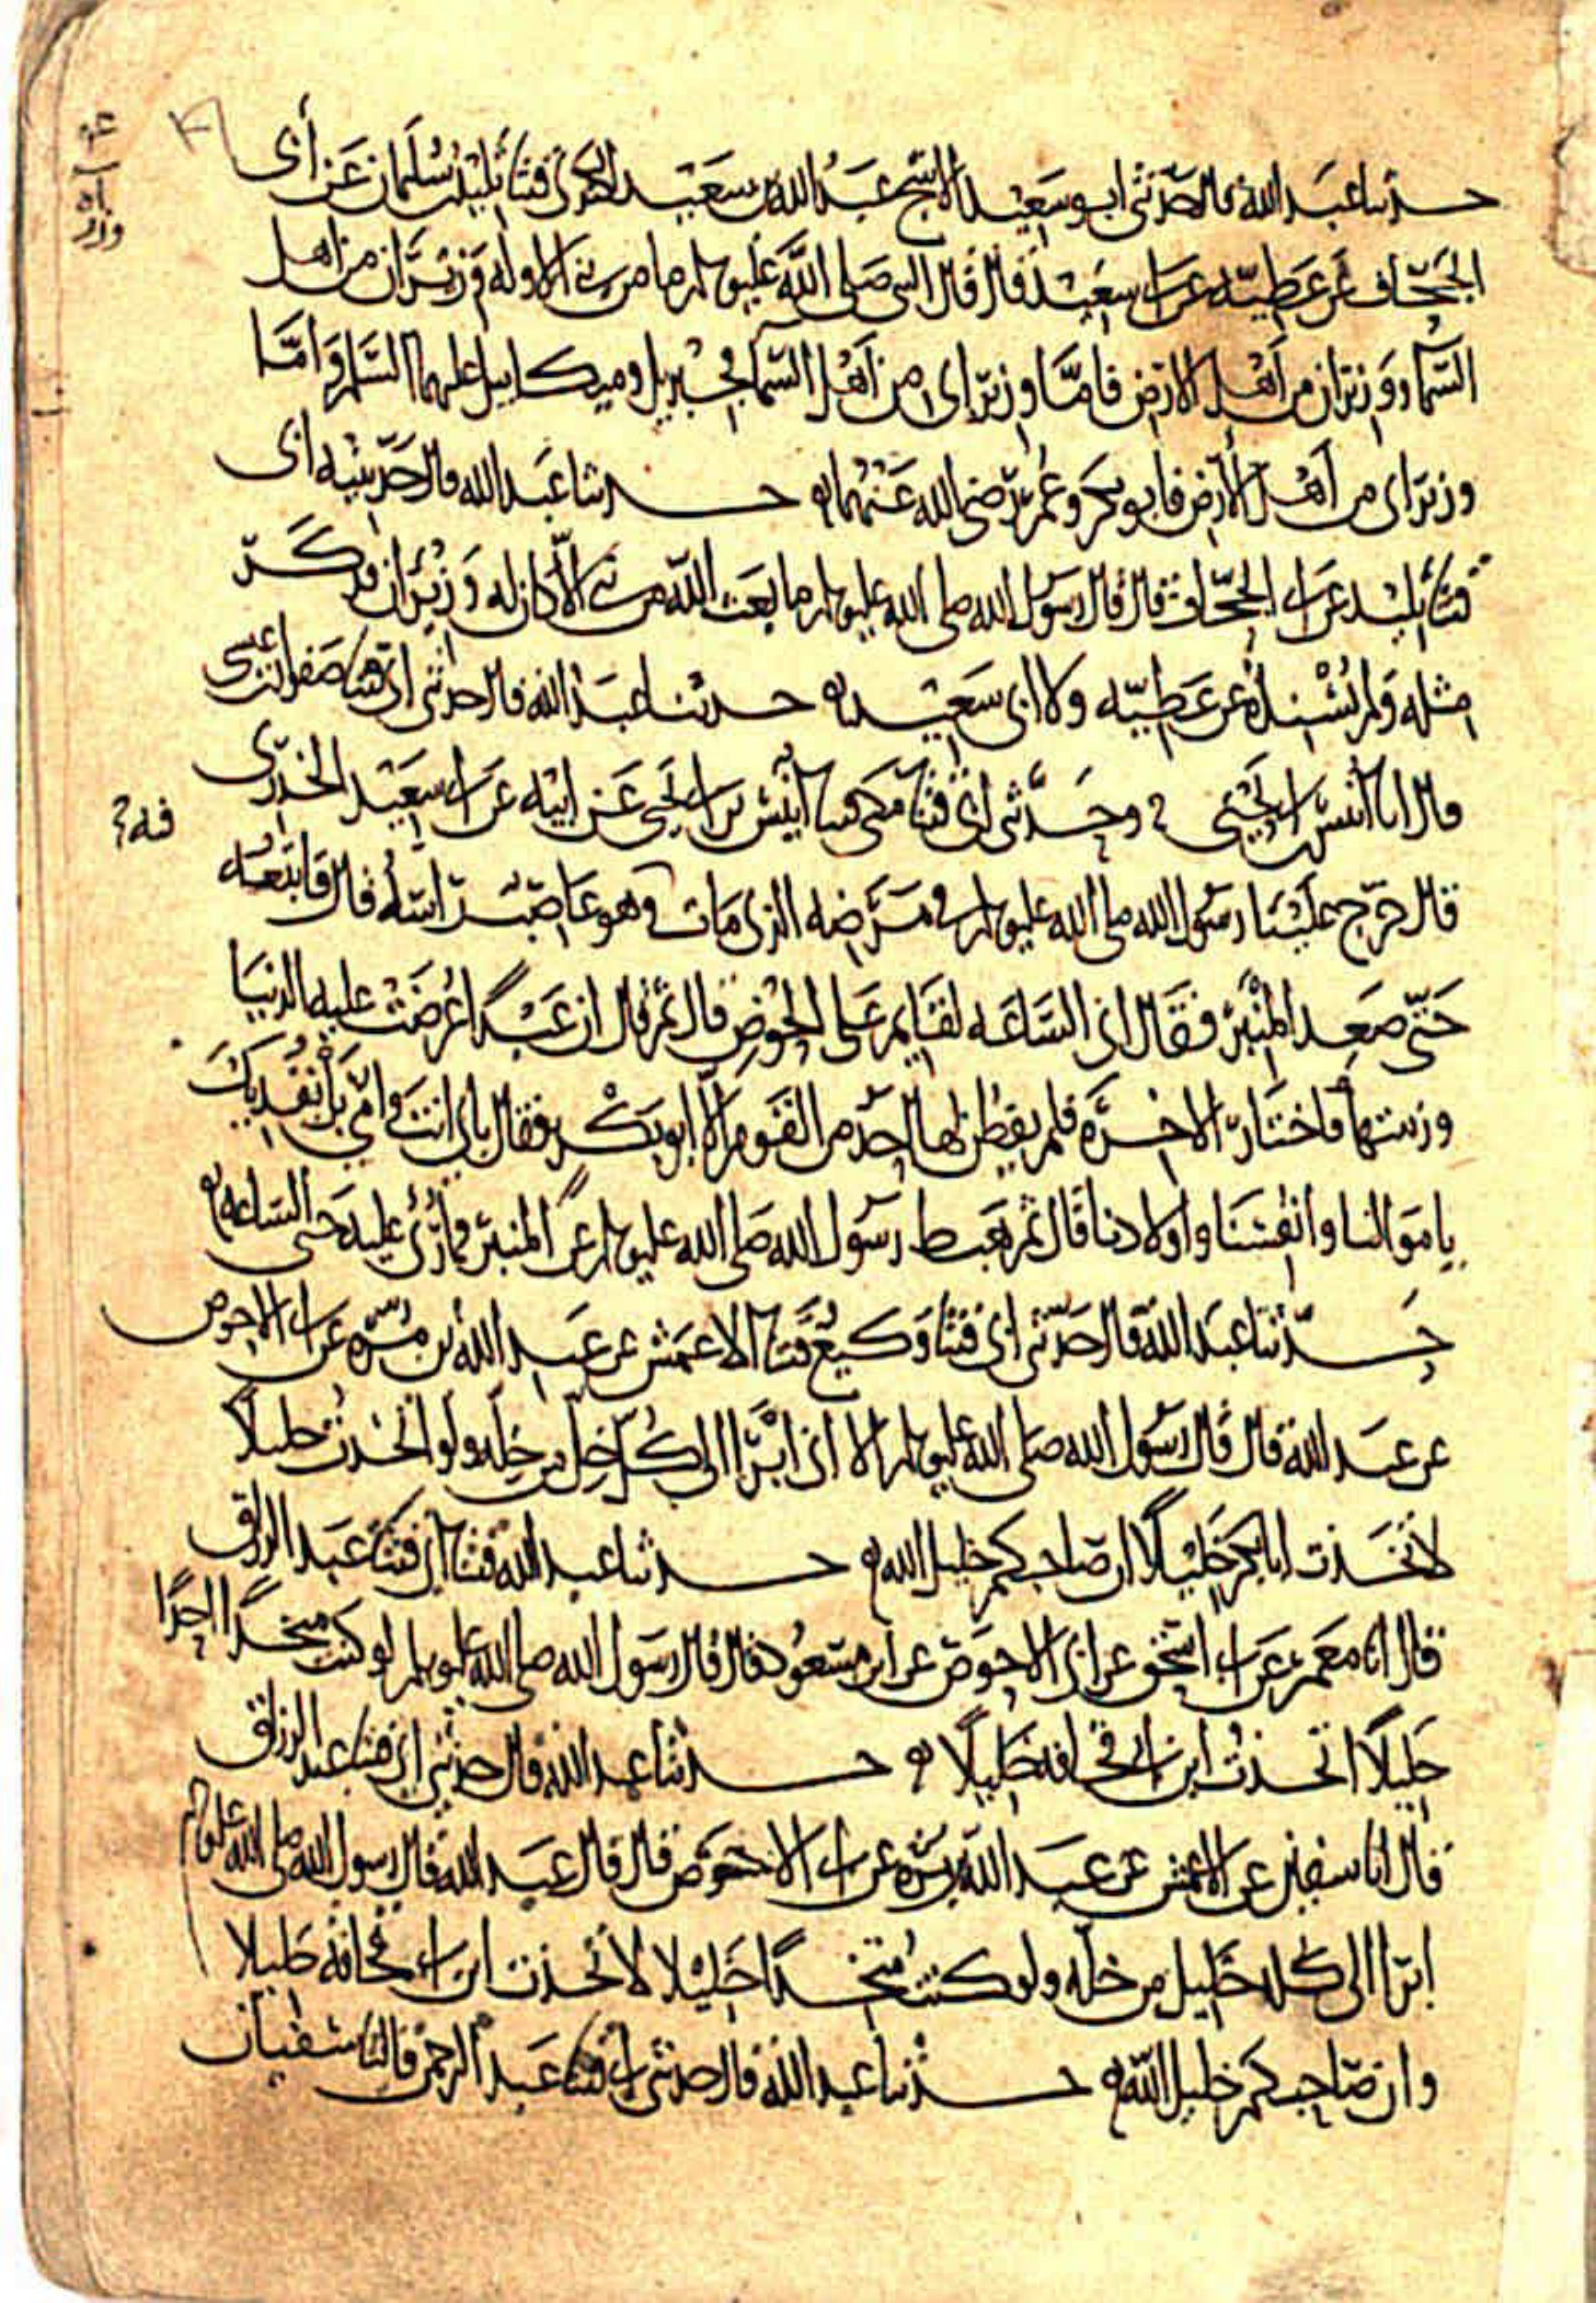 حدثنا عبد الله قال حدثني ابو سعيد الاشج عبد الله بن سعيد الكندي قثنا تليد بن سليمان عن أبي
الجحّاف عن عطيّه عن ابي سعيد قال قال النبي صلى الله عليه وسلم ما من نبي الا وله وزيران من اهل
السّماء ووزيران من أهل الارض فامّا وزيراي من أهل السّماء فجبريل وميكاييل عليهما السّلم وامّا
وزيراي من أهل الأرض فابو بكر وعمر رضي الله عنهما ه حدثنا عبد الله قال حدثنيه ابي
قثنا تليد عن ابي الجحّاف قال قال رسول الله صلى الله عليه وسلم ما بعث الله من نبي الاّ كان له وزيران فذكر
مثله ولم يسنده عن عطيّه ولا ابي سعيد ه حدثنا عبد الله قال حدثني ابي قثنا صفوان بن عيسى
قال انا انيس بن ابي يحيى وحدّثني ابي قثنا مكي قثنا أنيس بن ابي يحيى عن ابيه عن ابي سعيد الخدري
قال خرج علينا رسول الله صلى الله عليه وسلم في مرضه الذي مات فيه وهو عاصب راسه قال فاتبعته
حتّى صعد المنبر فقال اني السّاعه لقايم على الحوض قال ثم قال ان عبدًا عُرضت عليه الدنيا
وزينتها فاختار الاخره فلم يفطن لها احد من القوم الاّ ابو بكر فقال بابي انت وامّي بل نفديك
باموالنا وانفسنا واولادنا قال ثم هبط رسول الله صلى الله عليه وسلم عن المنبر فما رُئي عليه حتى السّاعه ه
حدّثنا عبد الله قال حدّثني ابي قثنا وكيع قثنا الاعمش عن عبد الله بن مرّه عن ابي الاحوص
عن عبد الله قال قال رسول الله صلى الله عليه وسلم الا اني ابرّا الى كل خلّ من خلّه ولو اتخذت خليلاً
لاتخذت ابا بكر خليلًا ان صاحبكم خليل الله ه حدثنا عبد الله قثنا ابي قثنا عبد الرزاق
قال انا معمر عن ابي اسحق عن ابي الاحوص عن ابن مسعود قال قال رسول الله صلى الله عليه وسلم لو كنت متخذًا احدًا
خليلًا اتخذت ابن ابي قحافه خليلًا ه حدثنا عبد الله قال حدثني ابي قثنا عبد الرزاق
قال انا سفين عن الاعمش عن عبد الله بن مرّه عن ابي الاحوص قال قال عبد الله قال رسول الله صلى الله عليه وسلم
ابرّا الى كل خليل من خلّه ولو كنت متخذًا خليلا لاتخذت ابن ابي قحافه خليلا
وان صاحبكم خليل الله ه حدثنا عبد الله قال حدثني ابي قثنا عبد الرحمن قال ثنا سفيان